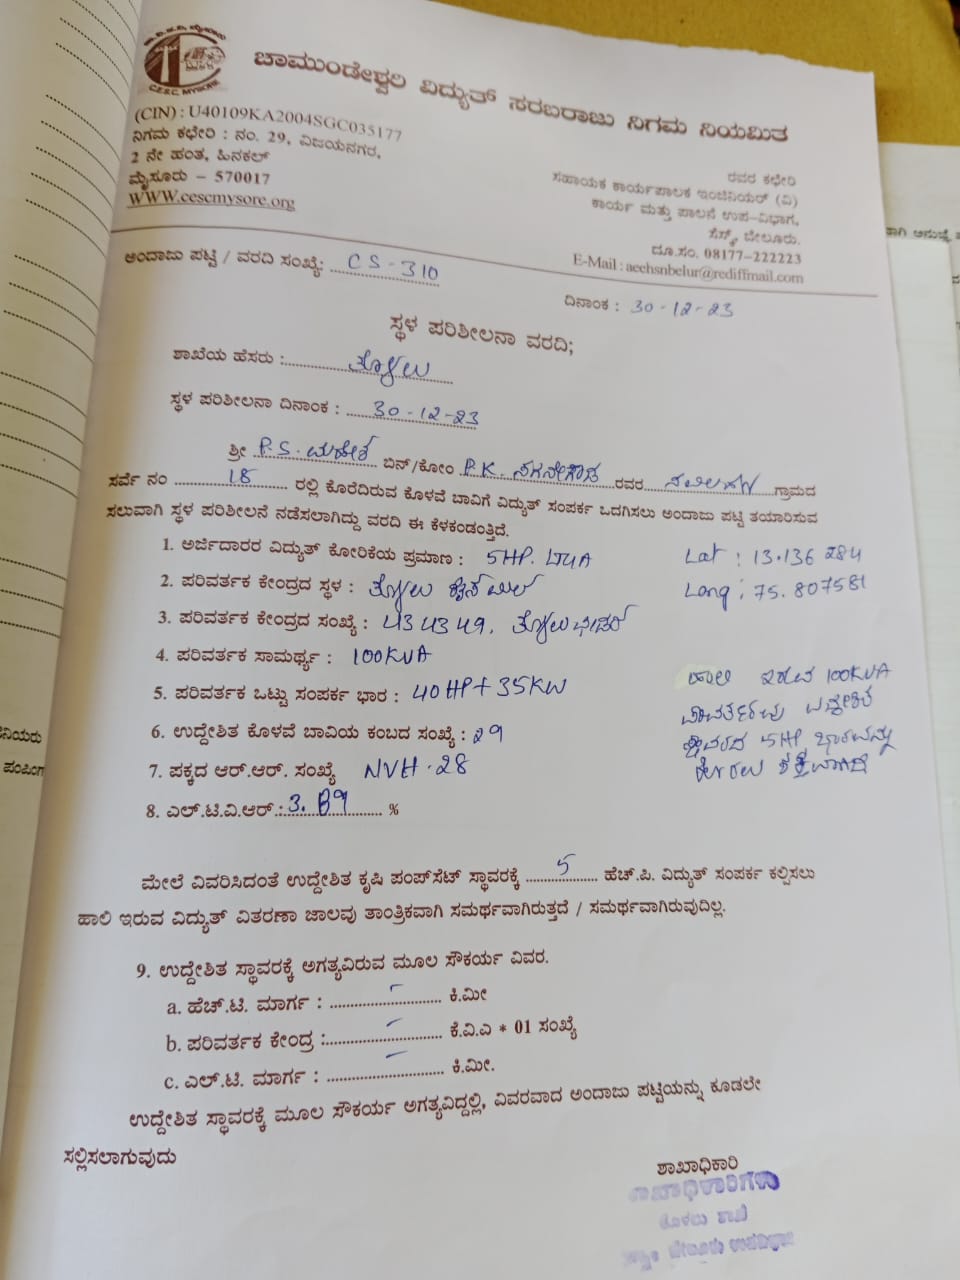 C.E.S.C. MYSORE
ಚಾಮುಂಡೇಶ್ವರಿ ವಿದ್ಯುತ್ ಸರಬರಾಜು ನಿಗಮ ನಿಯಮಿತ
(CIN) : U40109KA2004SGC035177
ನಿಗಮ ಕಛೇರಿ : ನಂ. 29, ವಿಜಯನಗರ,
2 ನೇ ಹಂತ, ಹಿನಕಲ್
ಮೈಸೂರು – 570017
WWW.cescmysore.org
ರವರ ಕಛೇರಿ
ಸಹಾಯಕ ಕಾರ್ಯಪಾಲಕ ಇಂಜಿನಿಯರ್ (ವಿ)
ಕಾರ್ಯ ಮತ್ತು ಪಾಲನೆ ಉಪ-ವಿಭಾಗ,
ಸೆಸ್ಕ್, ಬೇಲೂರು.
ದೂ.ಸಂ. 08177-222223
E-Mail : aeehsnbelur@rediffmail.com
ಅಂದಾಜು ಪಟ್ಟಿ / ವರದಿ ಸಂಖ್ಯೆ: CS-310
ದಿನಾಂಕ : 30-12-23
ಸ್ಥಳ ಪರಿಶೀಲನಾ ವರದಿ;
ಶಾಖೆಯ ಹೆಸರು :
ಸ್ಥಳ ಪರಿಶೀಲನಾ ದಿನಾಂಕ : 30-12-23
ಶ್ರೀ P.S. ಮಹೇಶ ಬಿನ್/ಕೋಂ P.K. ರವರ ಗ್ರಾಮದ
ಸರ್ವೆ ನಂ 18 ರಲ್ಲಿ ಕೊರೆದಿರುವ ಕೊಳವೆ ಬಾವಿಗೆ ವಿದ್ಯುತ್ ಸಂಪರ್ಕ ಒದಗಿಸಲು ಅಂದಾಜು ಪಟ್ಟಿ ತಯಾರಿಸುವ
ಸಲುವಾಗಿ ಸ್ಥಳ ಪರಿಶೀಲನೆ ನಡೆಸಲಾಗಿದ್ದು ವರದಿ ಈ ಕೆಳಕಂಡಂತ್ತಿದೆ.
1. ಅರ್ಜಿದಾರರ ವಿದ್ಯುತ್ ಕೋರಿಕೆಯ ಪ್ರಮಾಣ : 5HP.
Lat : 13.136284
2. ಪರಿವರ್ತಕ ಕೇಂದ್ರದ ಸ್ಥಳ :
Long : 75.807581
3. ಪರಿವರ್ತಕ ಕೇಂದ್ರದ ಸಂಖ್ಯೆ : 434349.
4. ಪರಿವರ್ತಕ ಸಾಮರ್ಥ್ಯ : 100KVA
5. ಪರಿವರ್ತಕ ಒಟ್ಟು ಸಂಪರ್ಕ ಭಾರ : 40HP+35KW
ಹಾಲಿ ಇರುವ 100KVA
5HP
6. ಉದ್ದೇಶಿತ ಕೊಳವೆ ಬಾವಿಯ ಕಂಬದ ಸಂಖ್ಯೆ : 29
7. ಪಕ್ಕದ ಆರ್.ಆರ್. ಸಂಖ್ಯೆ NVH.28
8. ಎಲ್.ಟಿ.ವಿ.ಆರ್.: %
ಮೇಲೆ ವಿವರಿಸಿದಂತೆ ಉದ್ದೇಶಿತ ಕೃಷಿ ಪಂಪ್‌ಸೆಟ್ ಸ್ಥಾವರಕ್ಕೆ 5 ಹೆಚ್.ಪಿ. ವಿದ್ಯುತ್ ಸಂಪರ್ಕ ಕಲ್ಪಿಸಲು
ಹಾಲಿ ಇರುವ ವಿದ್ಯುತ್ ವಿತರಣಾ ಜಾಲವು ತಾಂತ್ರಿಕವಾಗಿ ಸಮರ್ಥವಾಗಿರುತ್ತದೆ / ಸಮರ್ಥವಾಗಿರುವುದಿಲ್ಲ.
9. ಉದ್ದೇಶಿತ ಸ್ಥಾವರಕ್ಕೆ ಅಗತ್ಯವಿರುವ ಮೂಲ ಸೌಕರ್ಯ ವಿವರ.
a. ಹೆಚ್.ಟಿ. ಮಾರ್ಗ : ಕಿ.ಮೀ
b. ಪರಿವರ್ತಕ ಕೇಂದ್ರ : ಕೆ.ವಿ.ಎ * 01 ಸಂಖ್ಯೆ
c. ಎಲ್.ಟಿ. ಮಾರ್ಗ : ಕಿ.ಮೀ.
ಉದ್ದೇಶಿತ ಸ್ಥಾವರಕ್ಕೆ ಮೂಲ ಸೌಕರ್ಯ ಅಗತ್ಯವಿದ್ದಲ್ಲಿ, ವಿವರವಾದ ಅಂದಾಜು ಪಟ್ಟಿಯನ್ನು ಕೂಡಲೇ
ಸಲ್ಲಿಸಲಾಗುವುದು
ಶಾಖಾಧಿಕಾರಿ
ಶಾಖಾಧಿಕಾರಿಗಳು